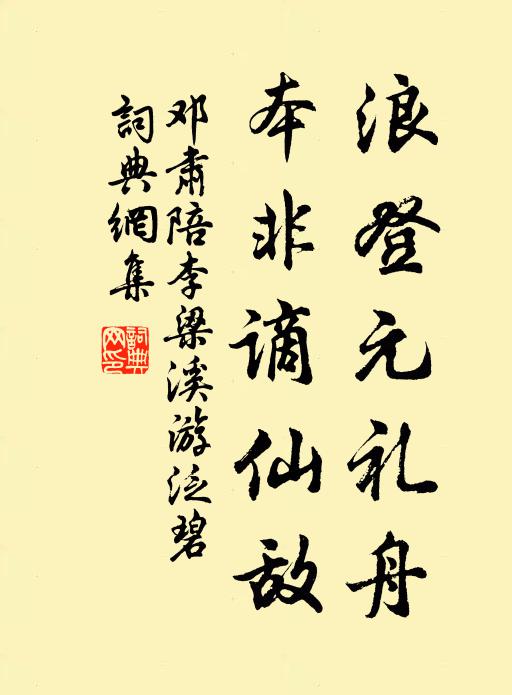 浪登元礼舟
本非谪仙敌
邓肃陪李梁溪游泛碧
詞典網集
詞典網印